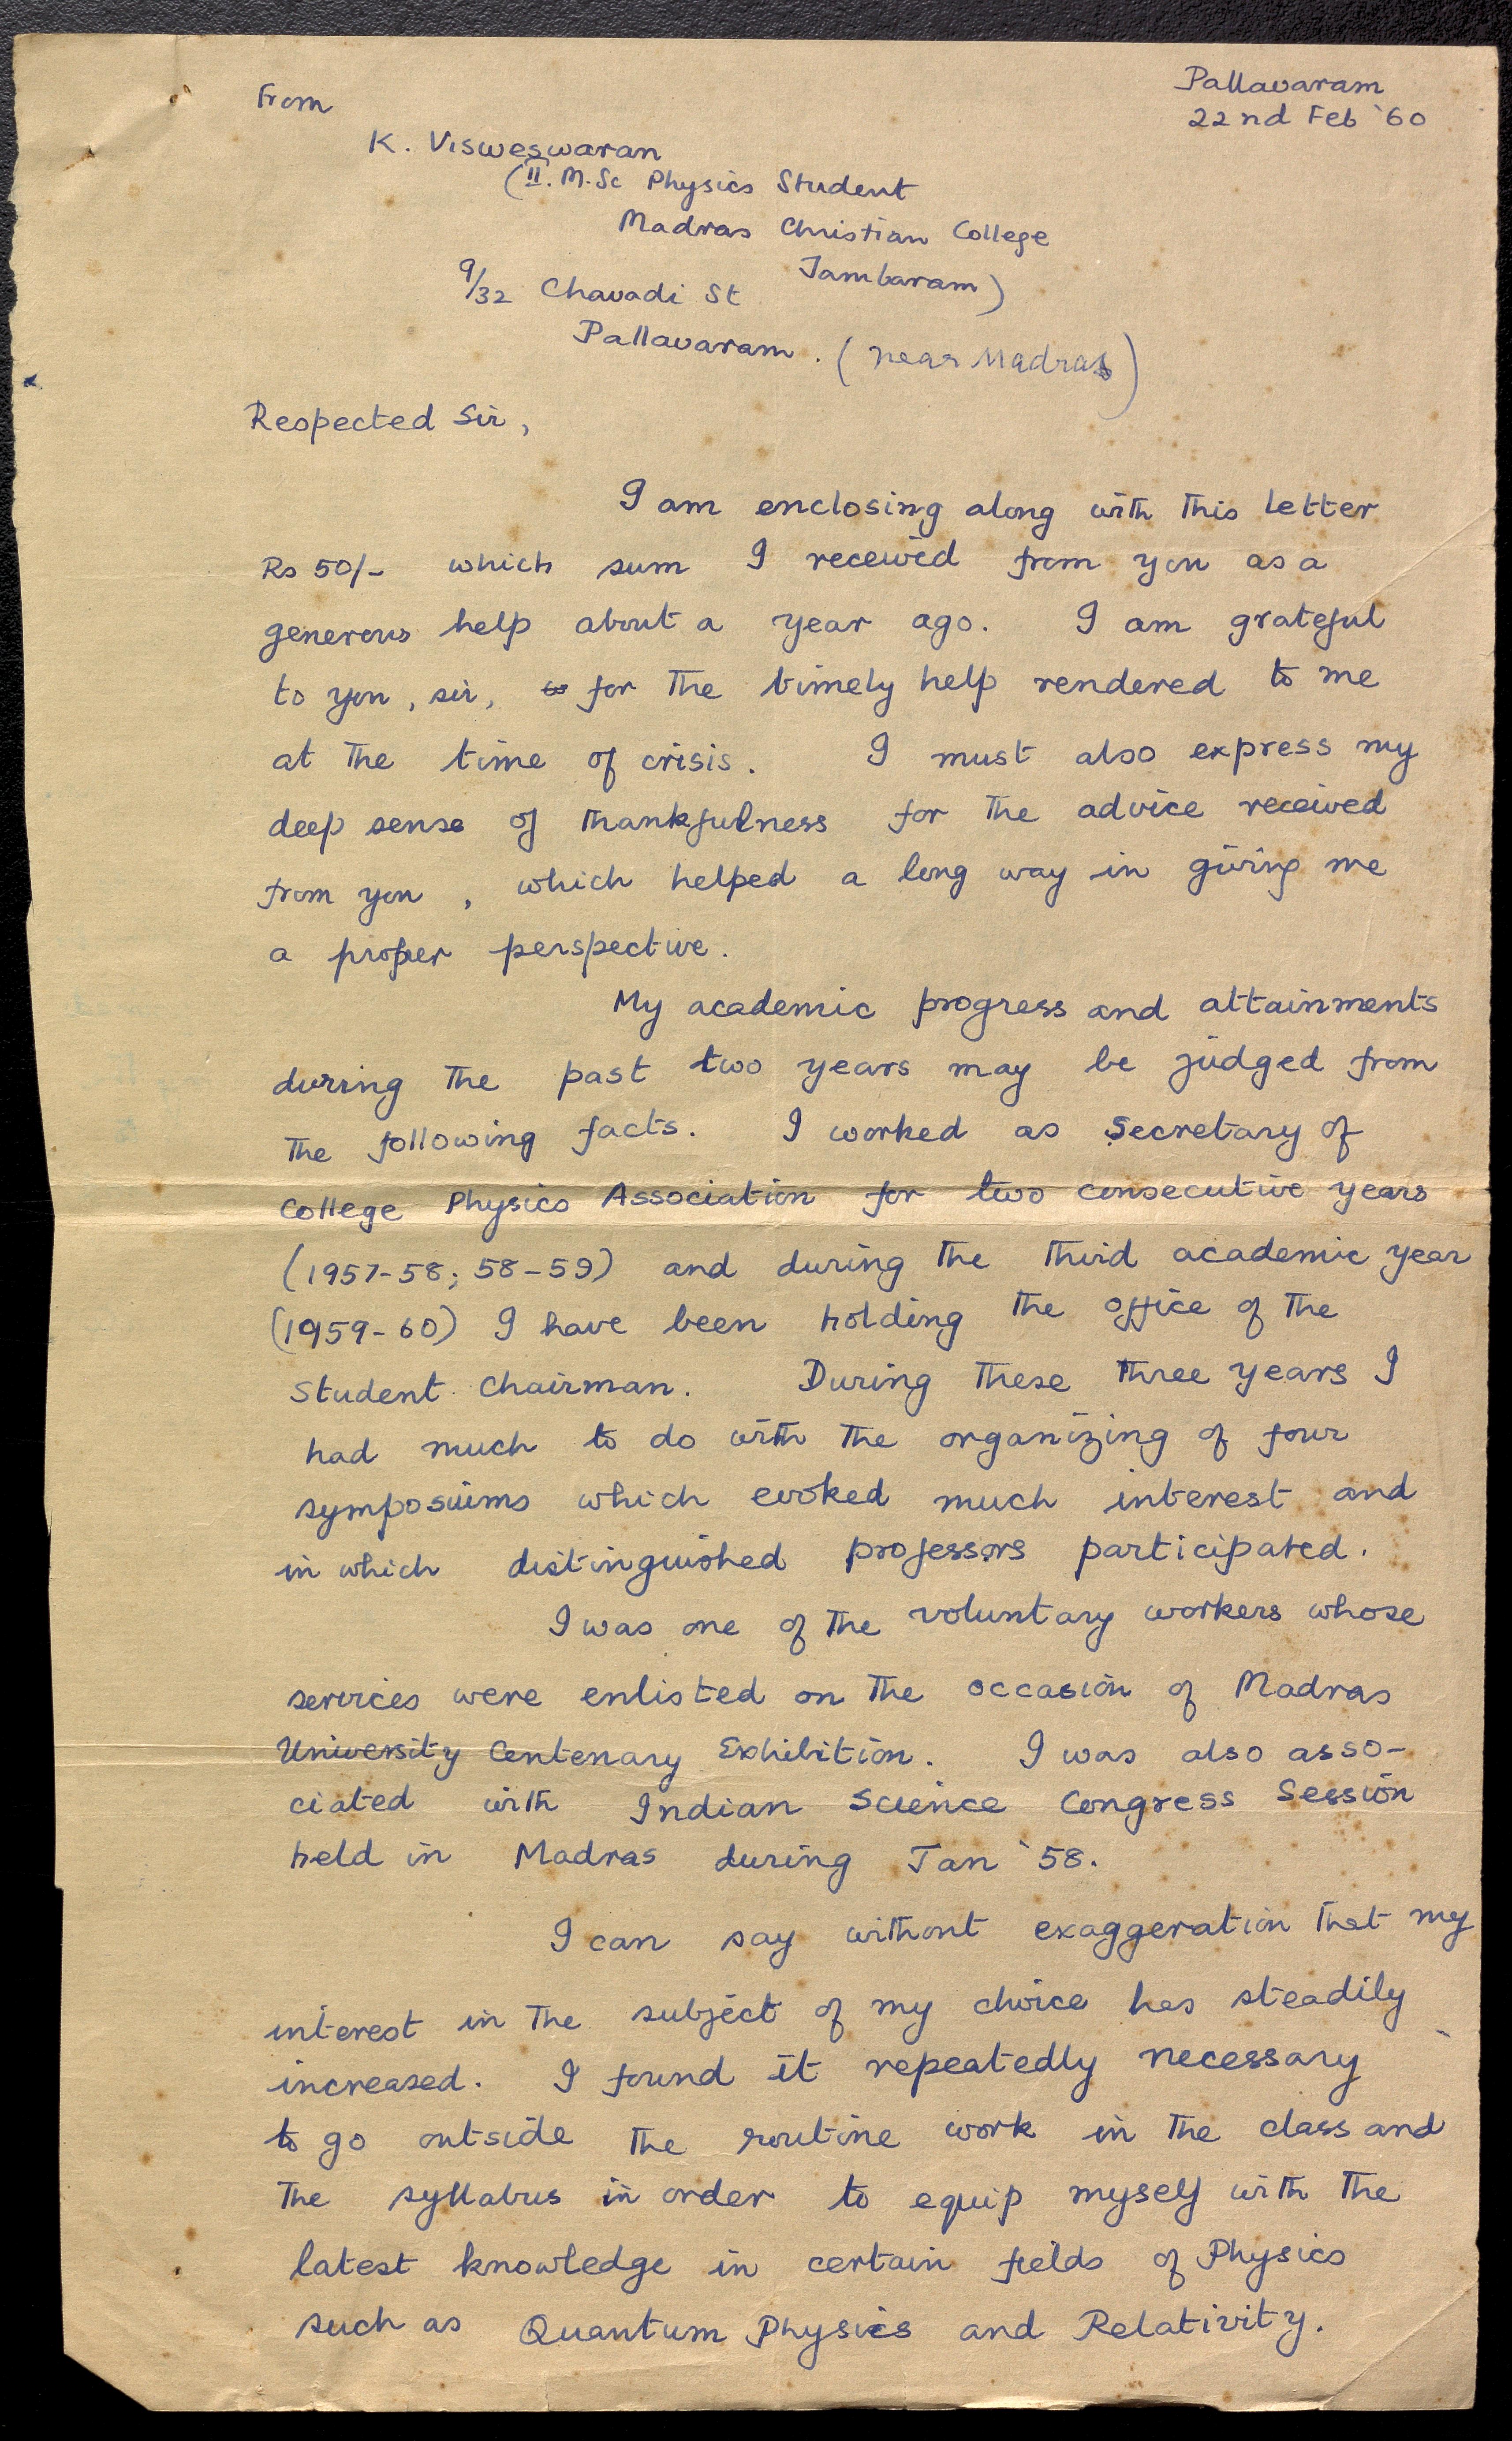 Pallavaram
22nd Feb '60
From
K. Visweswaran
(II. M.Sc Physics Student
Madras Christian College
Tambaram)
9/32 Chavadi St
Pallavaram. (near Madras)
Respected Sir,
I am enclosing along with this letter
Rs 50/- which sum I received from you as a
generous help about a year ago. I am grateful
to you, sir, for the timely help rendered to me
at the time of crisis. I must also express my
deep sense of thankfulness for the advice received
from you, which helped a long way in giving me
a proper perspective.
My academic progress and attainments
during the past two years may be judged from
the following facts. I worked as Secretary of
College Physics Association for two consecutive years
(1957-58; 58-59) and during the third academic year
(1959-60) I have been holding the office of the
Student Chairman. During these three years I
had much to do with the organizing of four
symposiums which evoked much interest and
in which distinguished professors participated.
I was one of the voluntary workers whose
services were enlisted on the occasion of Madras
University Centenary Exhibition. I was also asso-
ciated with Indian Science Congress Session
held in Madras during Jan '58.
I can say without exaggeration that my
interest in the subject of my choice has steadily
increased. I found it repeatedly necessary
to go outside the routine work in the class and
the syllabus in order to equip myself with the
latest knowledge in certain fields of Physics
such as Quantum Physics and Relativity.